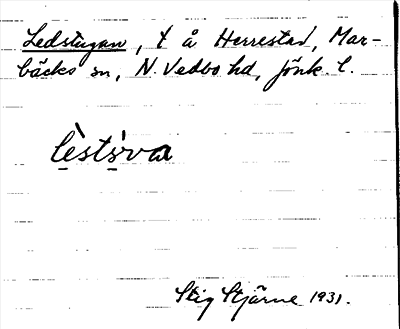 Ledstugan, t å Herrestad, Mar-
bäcks sn, N. Vedbo hd, Jönk. l.
lèstsva
Stig Stjärne 1931.